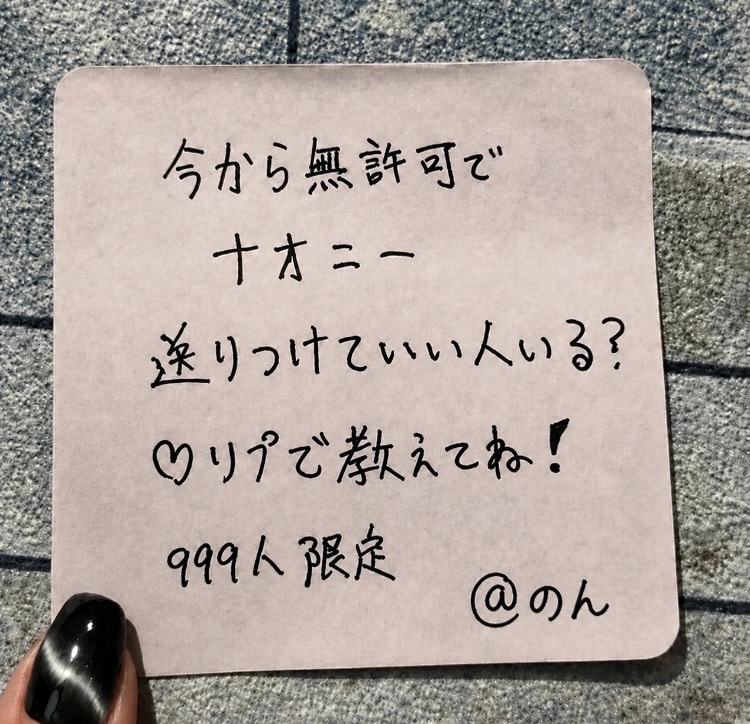 今から無許可で
ナオニー
送りつけていい人いる?
♡リプで教えてね!
999人限定
@のん